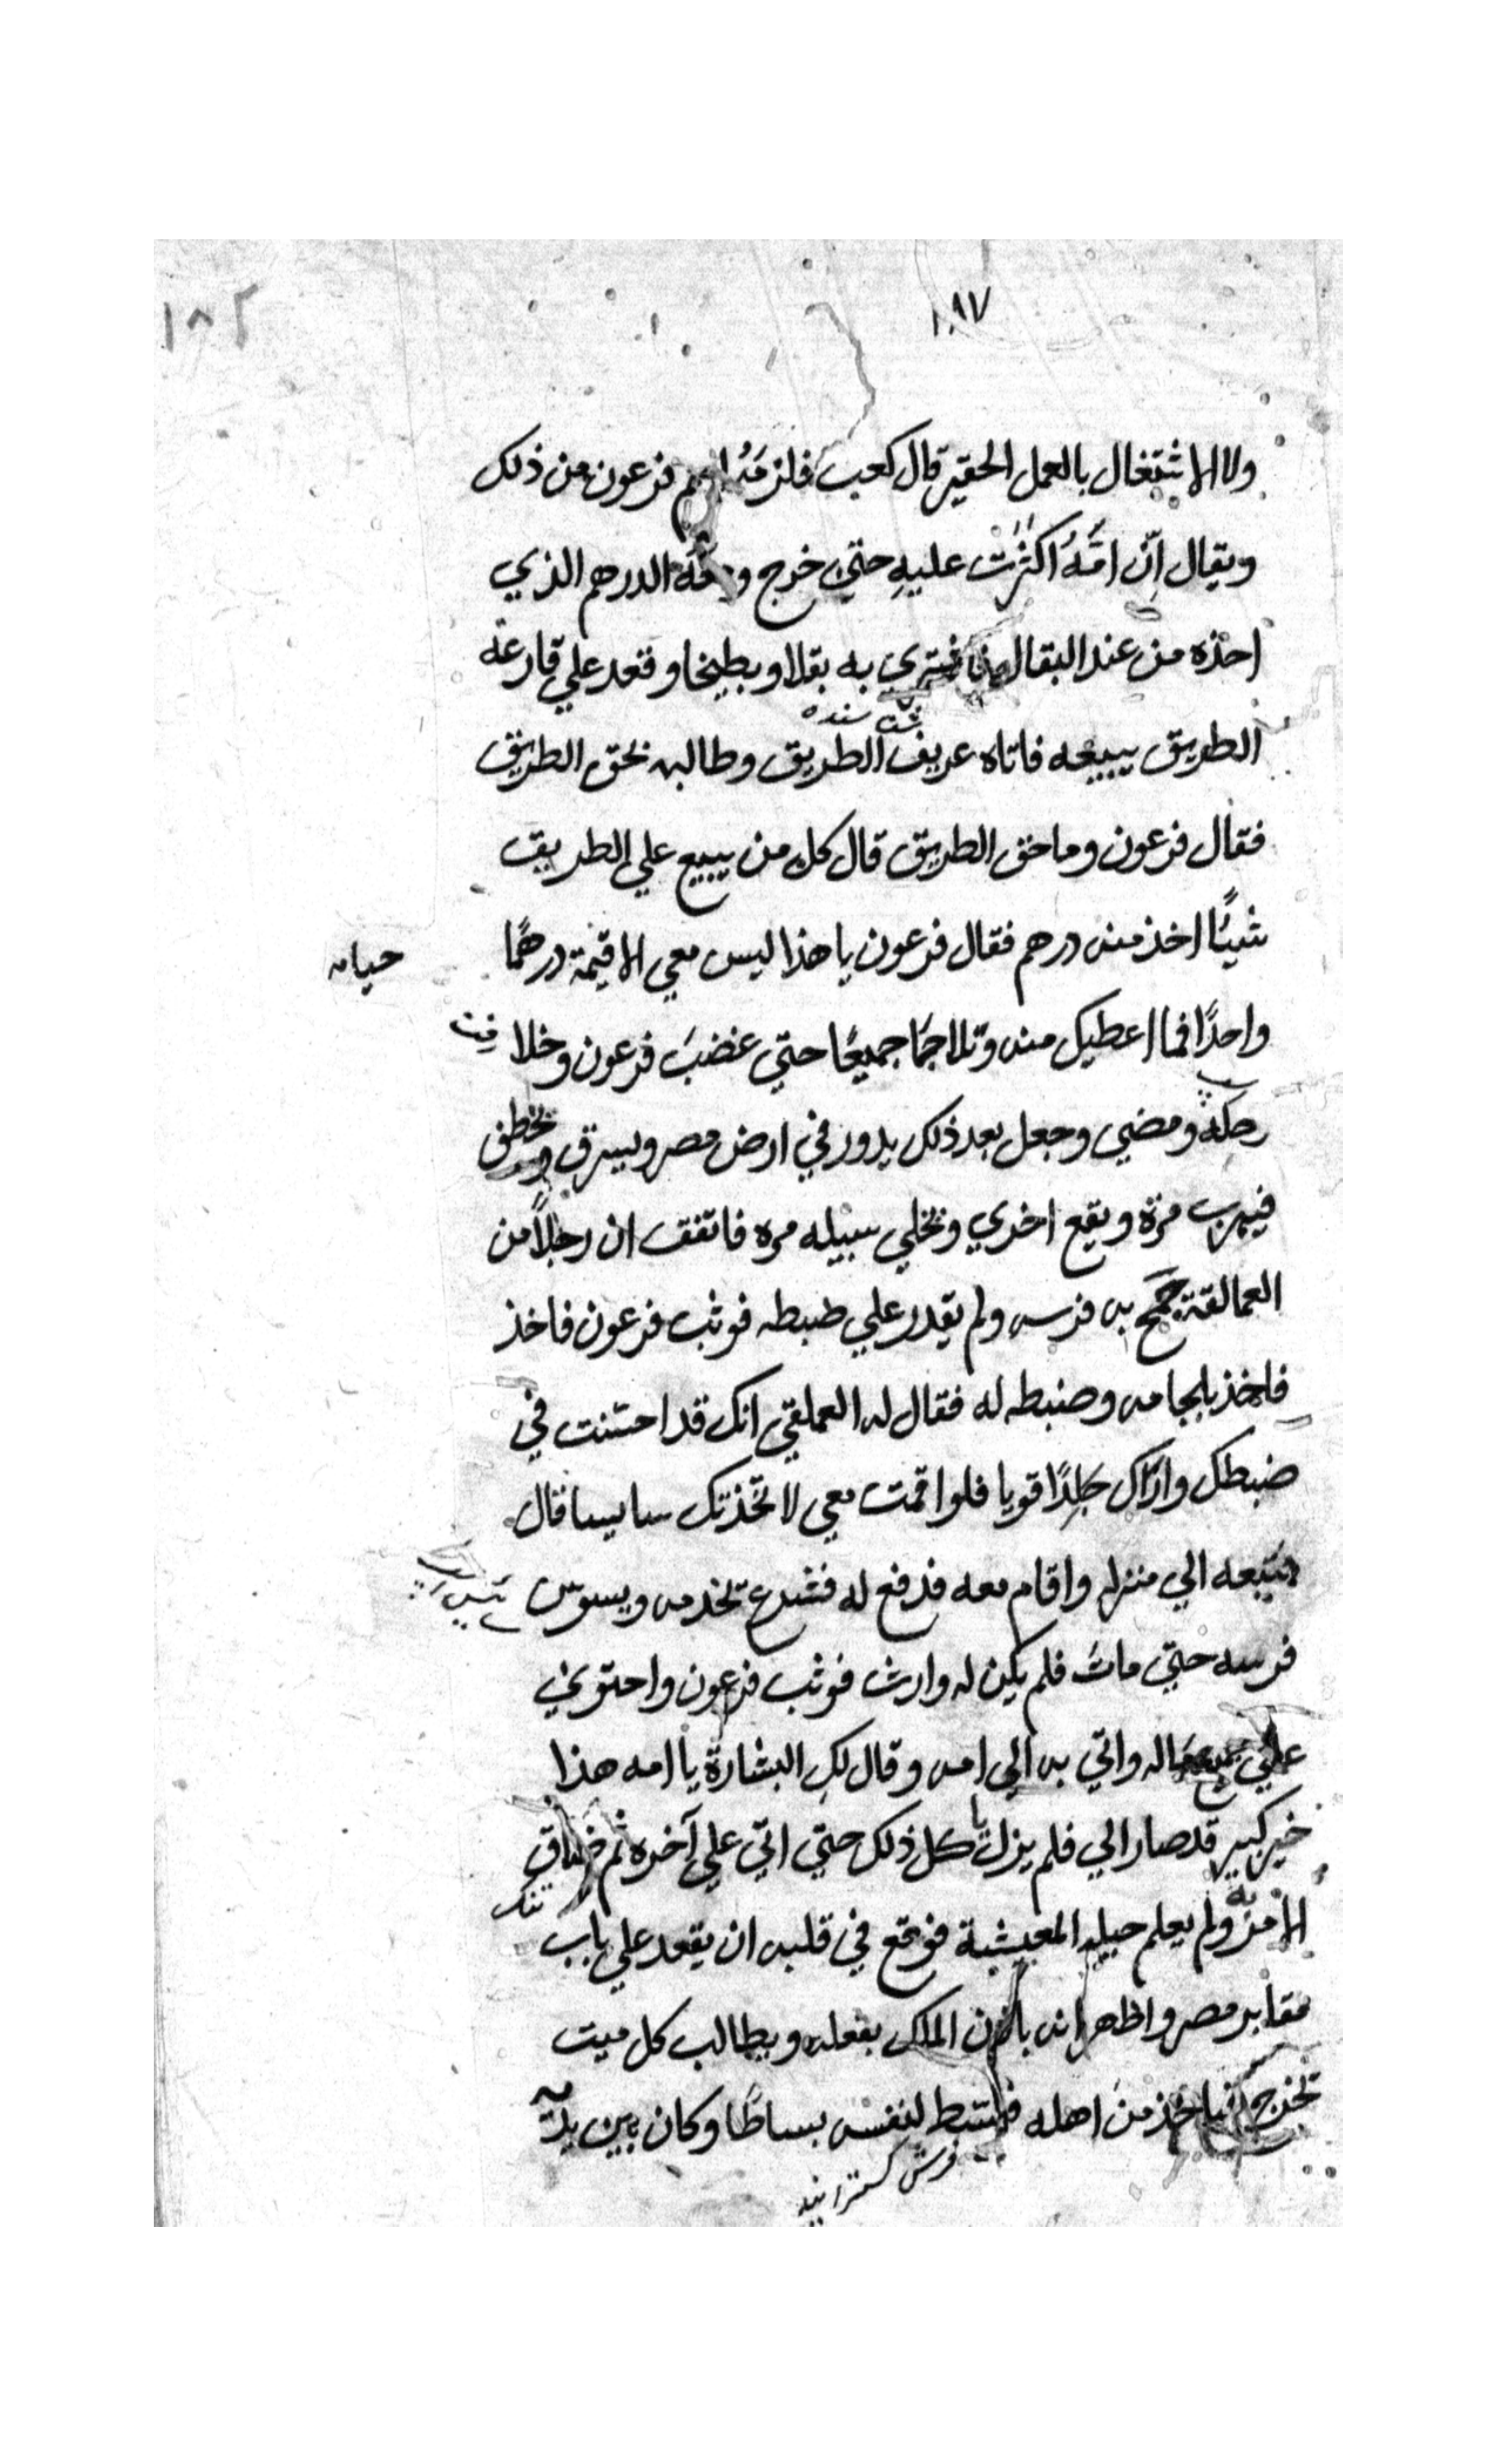 ١٨٧
١٨٢
ولا الاشتغال بالعمل الحقير قال كعب فلزمه اسم فرعون من ذلك
ويقال انّ امّهُ اكثرت عليهِ حتي خرج ومعه الدرهم الذي
اخذه من عند البقال فاشتري به بقلا وبطيخا وقعد علي قارعه
الطريق يبيعه فاتاه عريف الطريق وطالبه بحق الطريق
فقال فرعون وما حق الطريق قال كل من يبيع علي الطريق
شيئًا اخذ منه درهم فقال فرعون يا هذا ليس معي الا قيمة درهمًا
واحدًا فما اعطيك منه وتلاجمًا جميعًا حتي غضبَ فرعون وخلا
ومضي وجعل بعد ذلك يدور في ارض مصر ويسرق ويخطف
فيهرب مرّة ويقع اخري ويخلي سبيله مره فاتفق ان رجلاً من
العمالقة جمح به فرسه ولم يقدر علي ضبطه فوثب فرعون فاخذ
فاخذ بلجامه وضبطه له فقال له العملقي انك قد احسنت في
ضبطك واراك جلدًا قويا فلو اقمت معي لاتّخذتك سايسا قال
فتبعه الي منزله واقام معه فدفع له فشرع يخدمه ويسوس
فرسه حتي مات فلم يكن له وارث فوثب فرعون واحتوي
علي جميع ماله واتي به الي امه وقال لكِ البشارة يا امه هذا
خير كبير قد صار الي فلم يزل يا كل ذلك حتي اتي علي آخره ثم ضاق
الامر به ولم يعلم حيله المعيشة فوقع في قلبه ان يقعد علي باب
مقابر مصر واظهر انه باذن الملك بفعله ويطالب كل ميت
يخرج فياخذ من اهله فابتسط لنفسه بساطًا وكان بين يديه